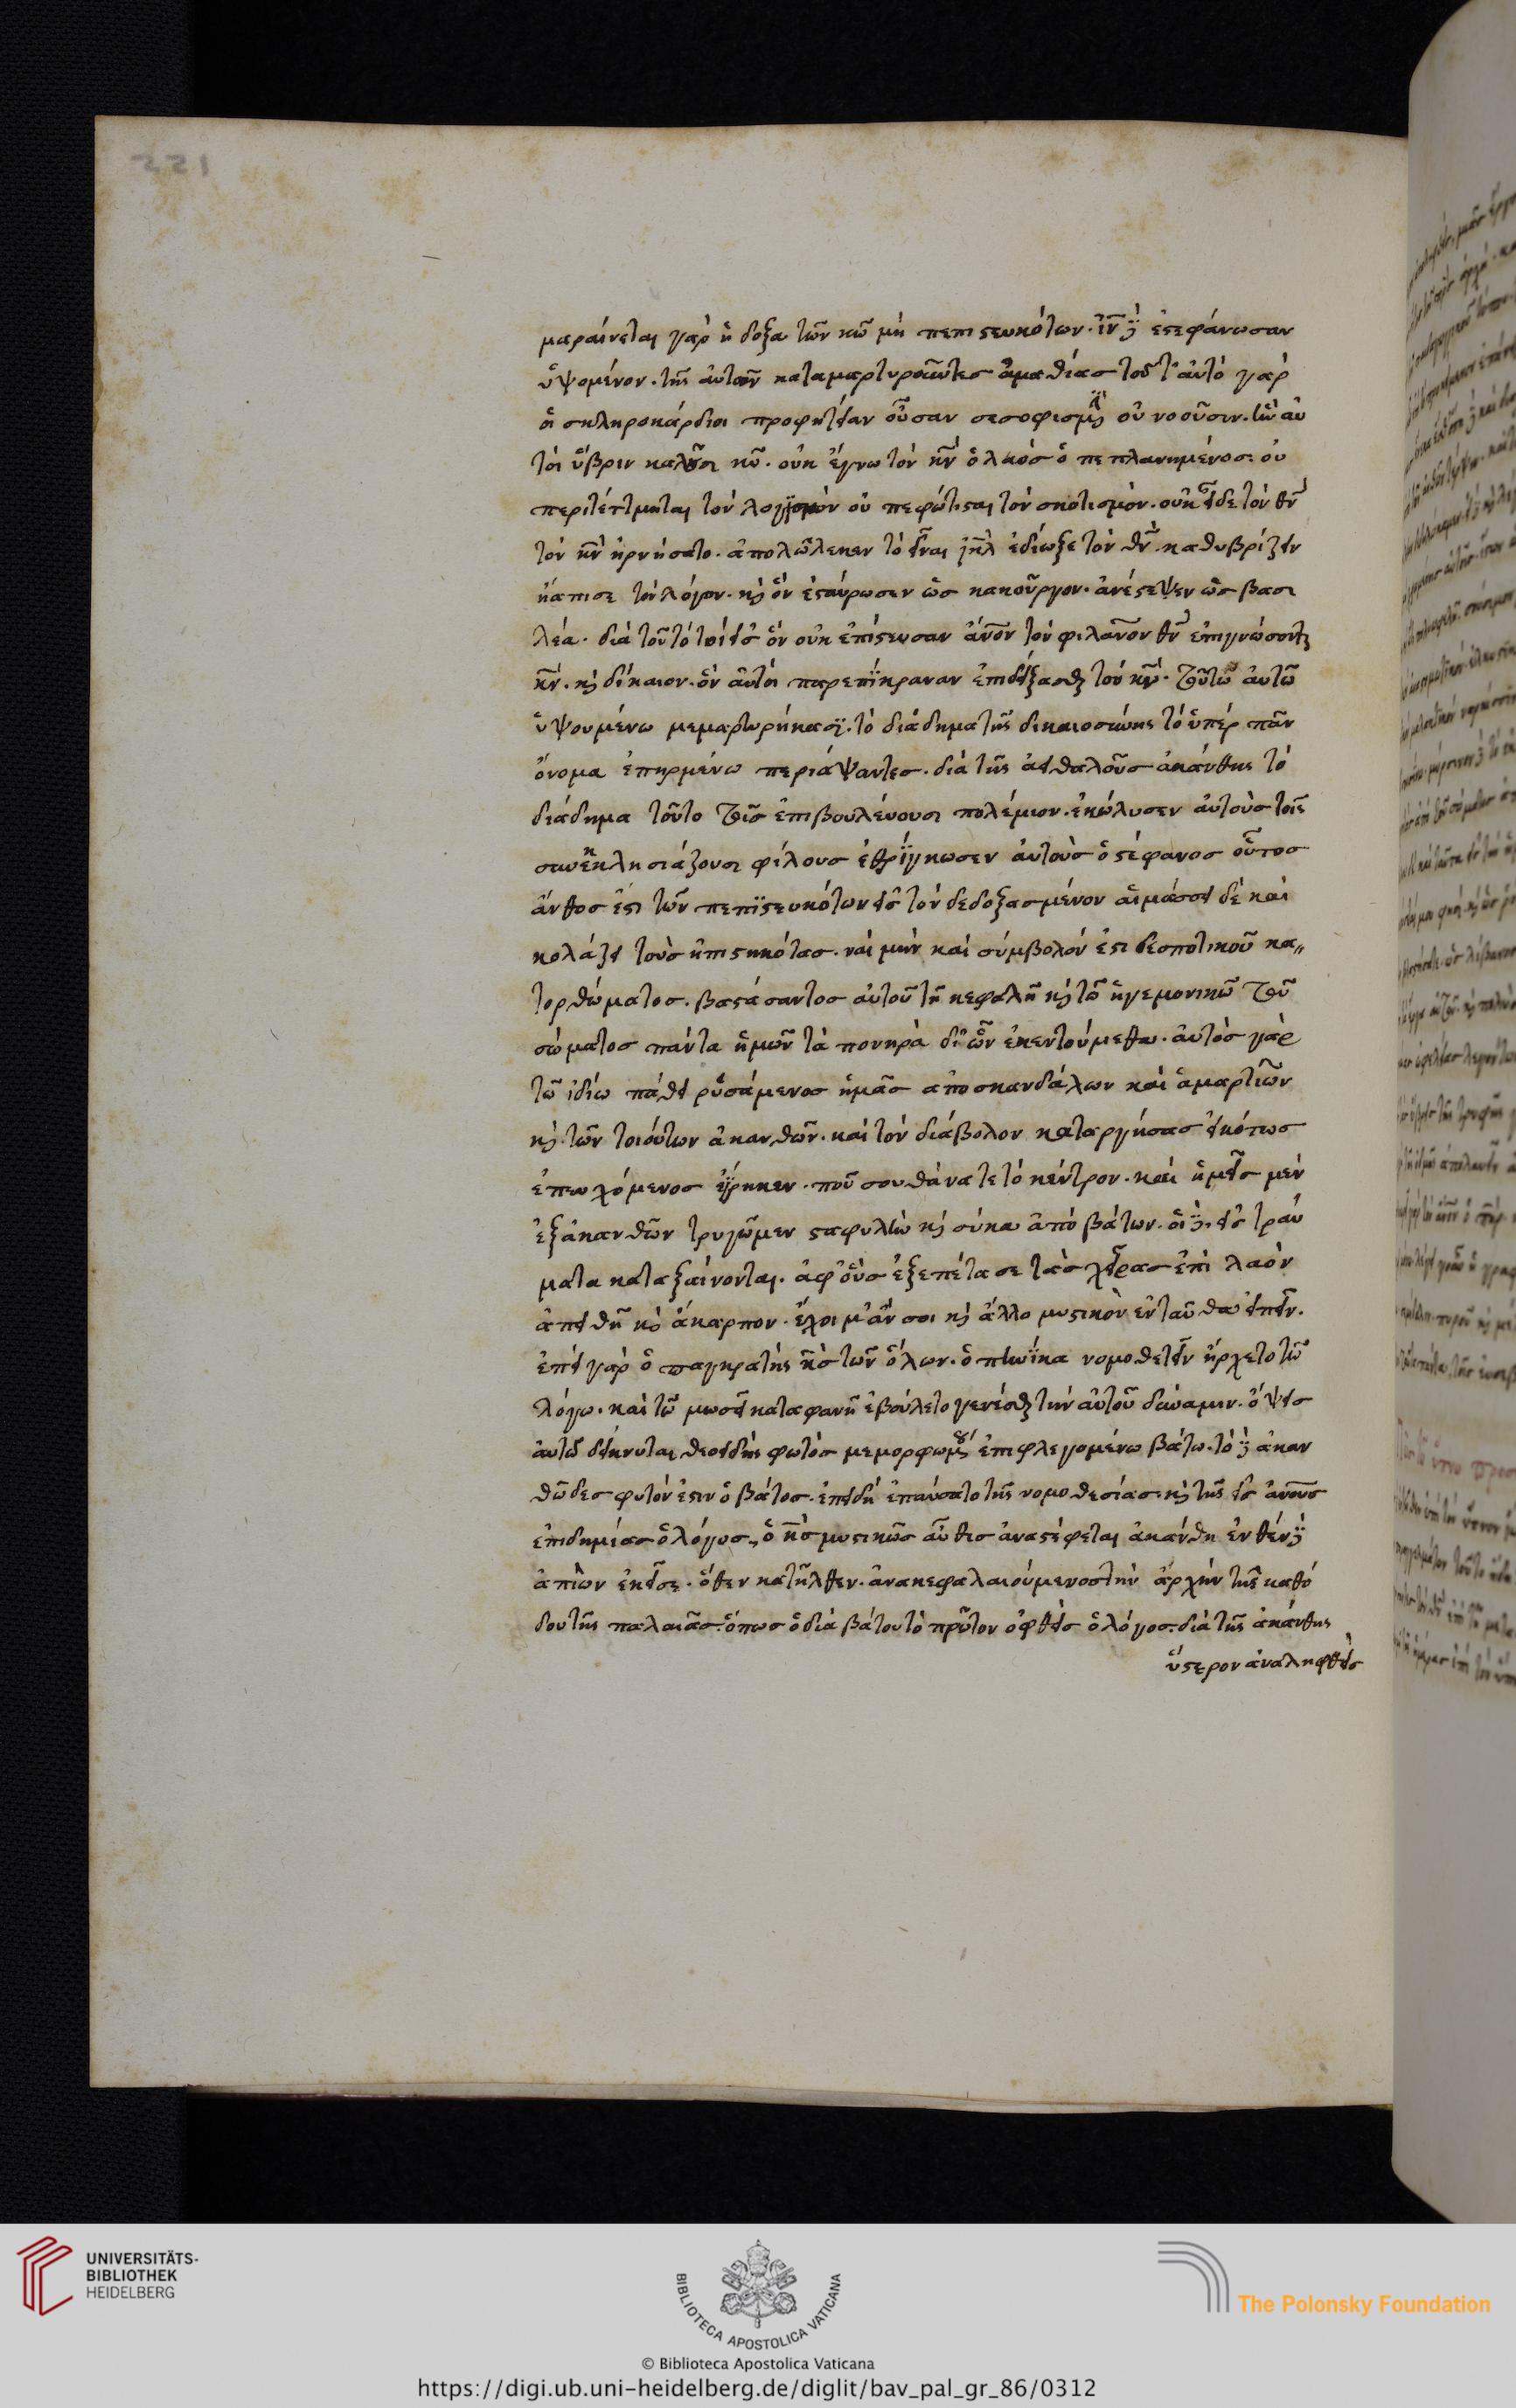 221
μαραίνεται γὰρ ἡ δόξα τῶν κῶ μὴ πεπιστευκότων. ἰν̅ δὲ ἐστεφάνωσαν
ὑψομένον. τῆς αὐτῶν καταμαρτυροῦντες ἀμαθίας τοῦτ' αὐτὸ γὰρ
οἱ σκληροκάρδιοι προφητείαν οὖσαν σεσοφισμ οὐ νοοῦσιν. ἣν αὐ
τοὶ ὕβριν καλοῦσι κυ̅. οὐκ ἔγνω τὸν κν̅ ὁ λαὸς ὁ πεπλανημένος. οὐ
περιτέτμηται τὸν λογισμὸν οὐ πεφώτισται τὸν σκοτισμόν. οὐκ εἶδε τὸν θν̅
τὸν κν̅ ἠρνήσατο. ἀπολώλεκεν τὸ εἶναι ιηλ̅ ἐδίωξε τὸν θν̅. καθυβρίζειν
ἤλπισε τὸν λόγον. κὶ ὃν ἐσταύρωσεν ὡς κακοῦργον. ἀνέστεψεν ὡς βασι
λέα. διὰ τοῦτό τοι εἰς ὃν οὐκ ἐπίστευσαν ἄνον̅ τὸν φιλανον̅ θν̅ ἐπιγνώσονται
κν̅. κὶ δίκαιον. ὃν αὐτοὶ παρεπίκραναν ἐπιδείξασθαι τὸν κν̅. τούτω αὐτῶ
ὑψουμένω μεμαρτυρήκασϊ. τὸ διάδημα τῆς δικαιοσύνης τὸ ὑπὲρ πᾶν
ὄνομα ἐπηρμένω περιάψαντες. διὰ τῆς ἀειθαλοῦς ἀκάνθης τὸ
διάδημα τοῦτο τοῖς ἐπιβουλεύουσι πολέμιον. ἐκώλυσεν αὐτοὺς τοῖς
συνεκκλησιάζουσι φίλους ἐθρίγκωσεν αὐτοὺς ὁ στέφανος οὗτος
ἄνθος ἐστὶ τῶν πεπιστευκότων εἰς τὸν δεδοξασμένον αἱμάσσει δὲ καὶ
κολάζει τοὺς ἠπιστηκότας. ναὶ μὴν καὶ σύμβολόν ἐστι δεσποτικοῦ κα„
τορθώματος. βαστάσαντος αὐτοῦ τῆ κεφαλῆ κὶ τῶ ἡγεμονικῶ τοῦ
σώματος πάντα ἡμῶν τὰ πονηρὰ δι' ὧν ἐκεντούμεθα. αὐτὸς γὰρ
τῶ ἰδίω πάθει ῥυσάμενος ἡμᾶς ἀπὸ σκανδάλων καὶ ἁμαρτιῶν
κὶ τῶν τοιούτων ἀκανθῶν. καὶ τὸν διάβολον καταργήσας εἰκότως
ἐπευχόμενος εἴρηκεν. ποῦ σου θάνατε τὸ κέντρον. καὶ ἡμεῖς μὲν
ἐξ ἀκανθῶν τρυγῶμεν σταφυλὴν κὶ σύκα ἀπὸ βάτων. οἱ δὲ. εἰς τραύ
ματα καταξαίνονται. ἀφ' οὓς ἐξεπέτασε τὰς χεῖρας ἐπὶ λαὸν
ἀπειθῆ κὶ ἄκαρπον. ἔχοιμ' ἄν σοι κὶ ἄλλο μυστικὸν ἐνταῦθα εἰπεῖν.
ἐπεὶ γὰρ ὁ παγκρατὴς κς̅ τῶν ὅλων. ὁπηνίκα νομοθετεῖν ἤρχετο τῶ
λόγω. καὶ τῶ μωσεῖ καταφανῆ ἐβούλετο γενέσθαι τὴν αὐτοῦ δύναμιν. ὄψεις
αὐτῶ δείκνυται θεοειδὴς φωτὸς μεμορφωμ ἐπὶ φλεγομένω βάτω. τὸ δὲ ἀκαν
θῶδες φυτόν ἐστιν ὁ βάτος. ἐπειδὴ ἐπαύσατο τῆς νομοθεσίας. κὶ τῆς εἰς ἀνους̅
ἐπιδημίας ὁ λόγος., ὁ κς̅ μυστικῶς αὖθις ἀναστέφεται ἀκάνθη ἐνθένδε
ἀπιὼν ἐκεῖσε. ὅθεν κατῆλθεν. ἀνακεφαλαιούμενος τὴν ἀρχὴν τῆς καθό
δου τῆς παλαιᾶς. ὅπως ὁ διὰ βάτου τὸ πρῶτον ὀφθεὶς ὁ λόγος. διὰ τῆς ἀκάνθης
ὕστερον ἀναληφθεὶς
UNIVERSITÄTS-
BIBLIOTHEK
HEIDELBERG
BIBLIOTECA APOSTOLICA VATICANA
The Polonsky Foundation
© Biblioteca Apostolica Vaticana
https://digi.ub.uni-heidelberg.de/diglit/bav_pal_gr_86/0312